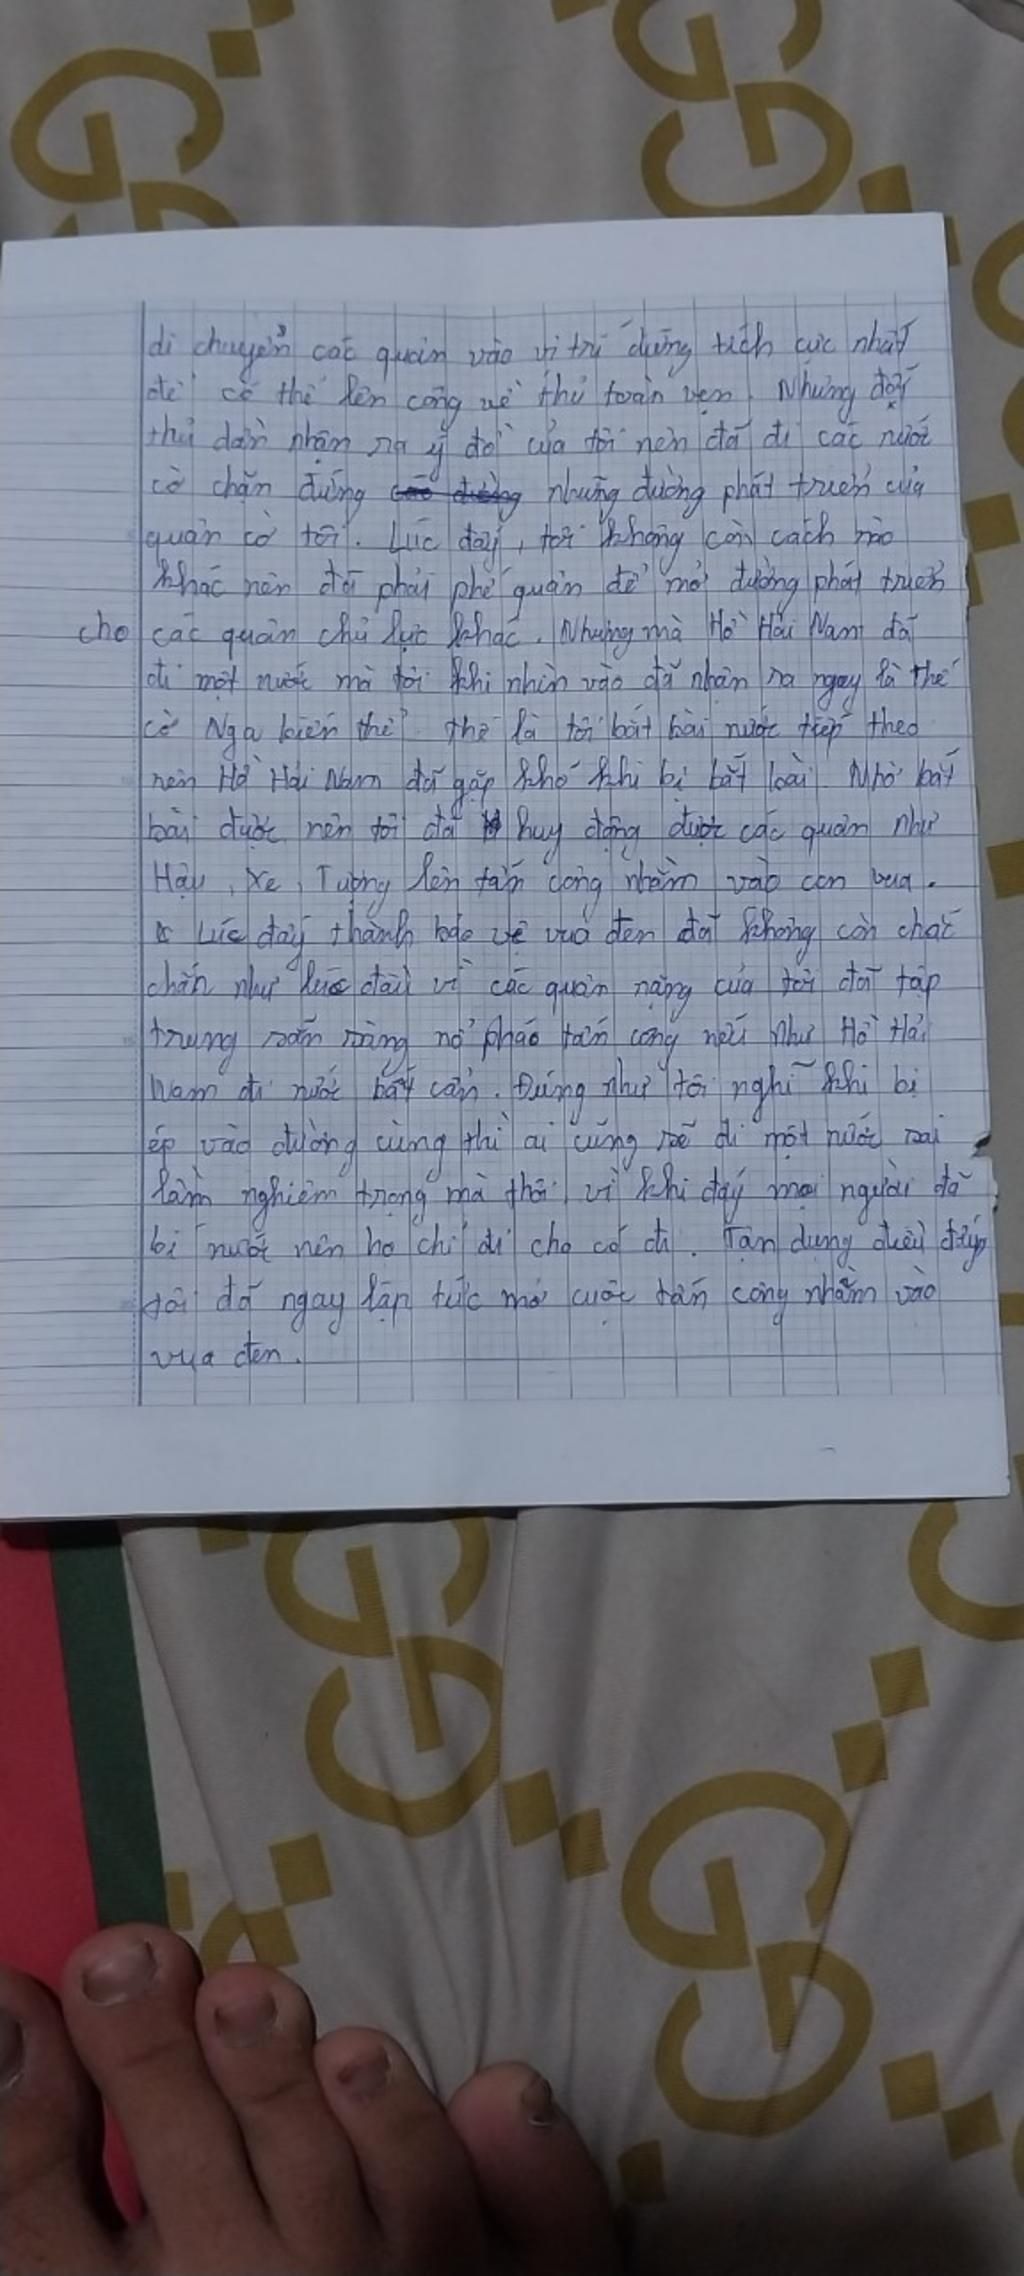 di chuyển các quân vào vị trí đứng tích cực nhất
để có thể lên công về thủ toàn vẹn. Nhưng đối
thủ dần nhận ra ý đồ của tôi nên đã đi các nước
cờ chặn đứng những đường phát triển của
quân cờ tôi. Lúc đấy, tôi không còn cách nào
khác nên đã phải phế quân để mở đường phát triển
cho các quân chủ lực khác. Nhưng mà Hồ Hải Nam đã
đi một nước mà tôi khi nhìn vào đã nhận ra ngay là thế
cờ Nga biến thể. Thế là tôi bắt bài nước tiếp theo
nên Hồ Hải Nam đã gặp khó khi bị bắt bài. Nhờ bắt
bài được nên tôi đã huy động được các quân như
Hậu, Xe, Tượng lên tấn công nhằm vào con vua.
Lúc đấy thành bảo vệ vua đen đã không còn chắc
chắn như lúc đầu vì các quân nặng của tôi đã tập
trung sẵn sàng nổ pháo tấn công nếu như Hồ Hải
Nam đi nước bất cẩn. Đúng như tôi nghĩ khi bị
ép vào đường cùng thì ai cũng sẽ đi một nước sai
lầm nghiêm trọng mà thôi vì khi đấy mọi người đã
bí nước nên họ chỉ đi cho có đi. Tận dụng điều đấy
tôi đã ngay lập tức mở cuộc tấn công nhằm vào
vua đen.